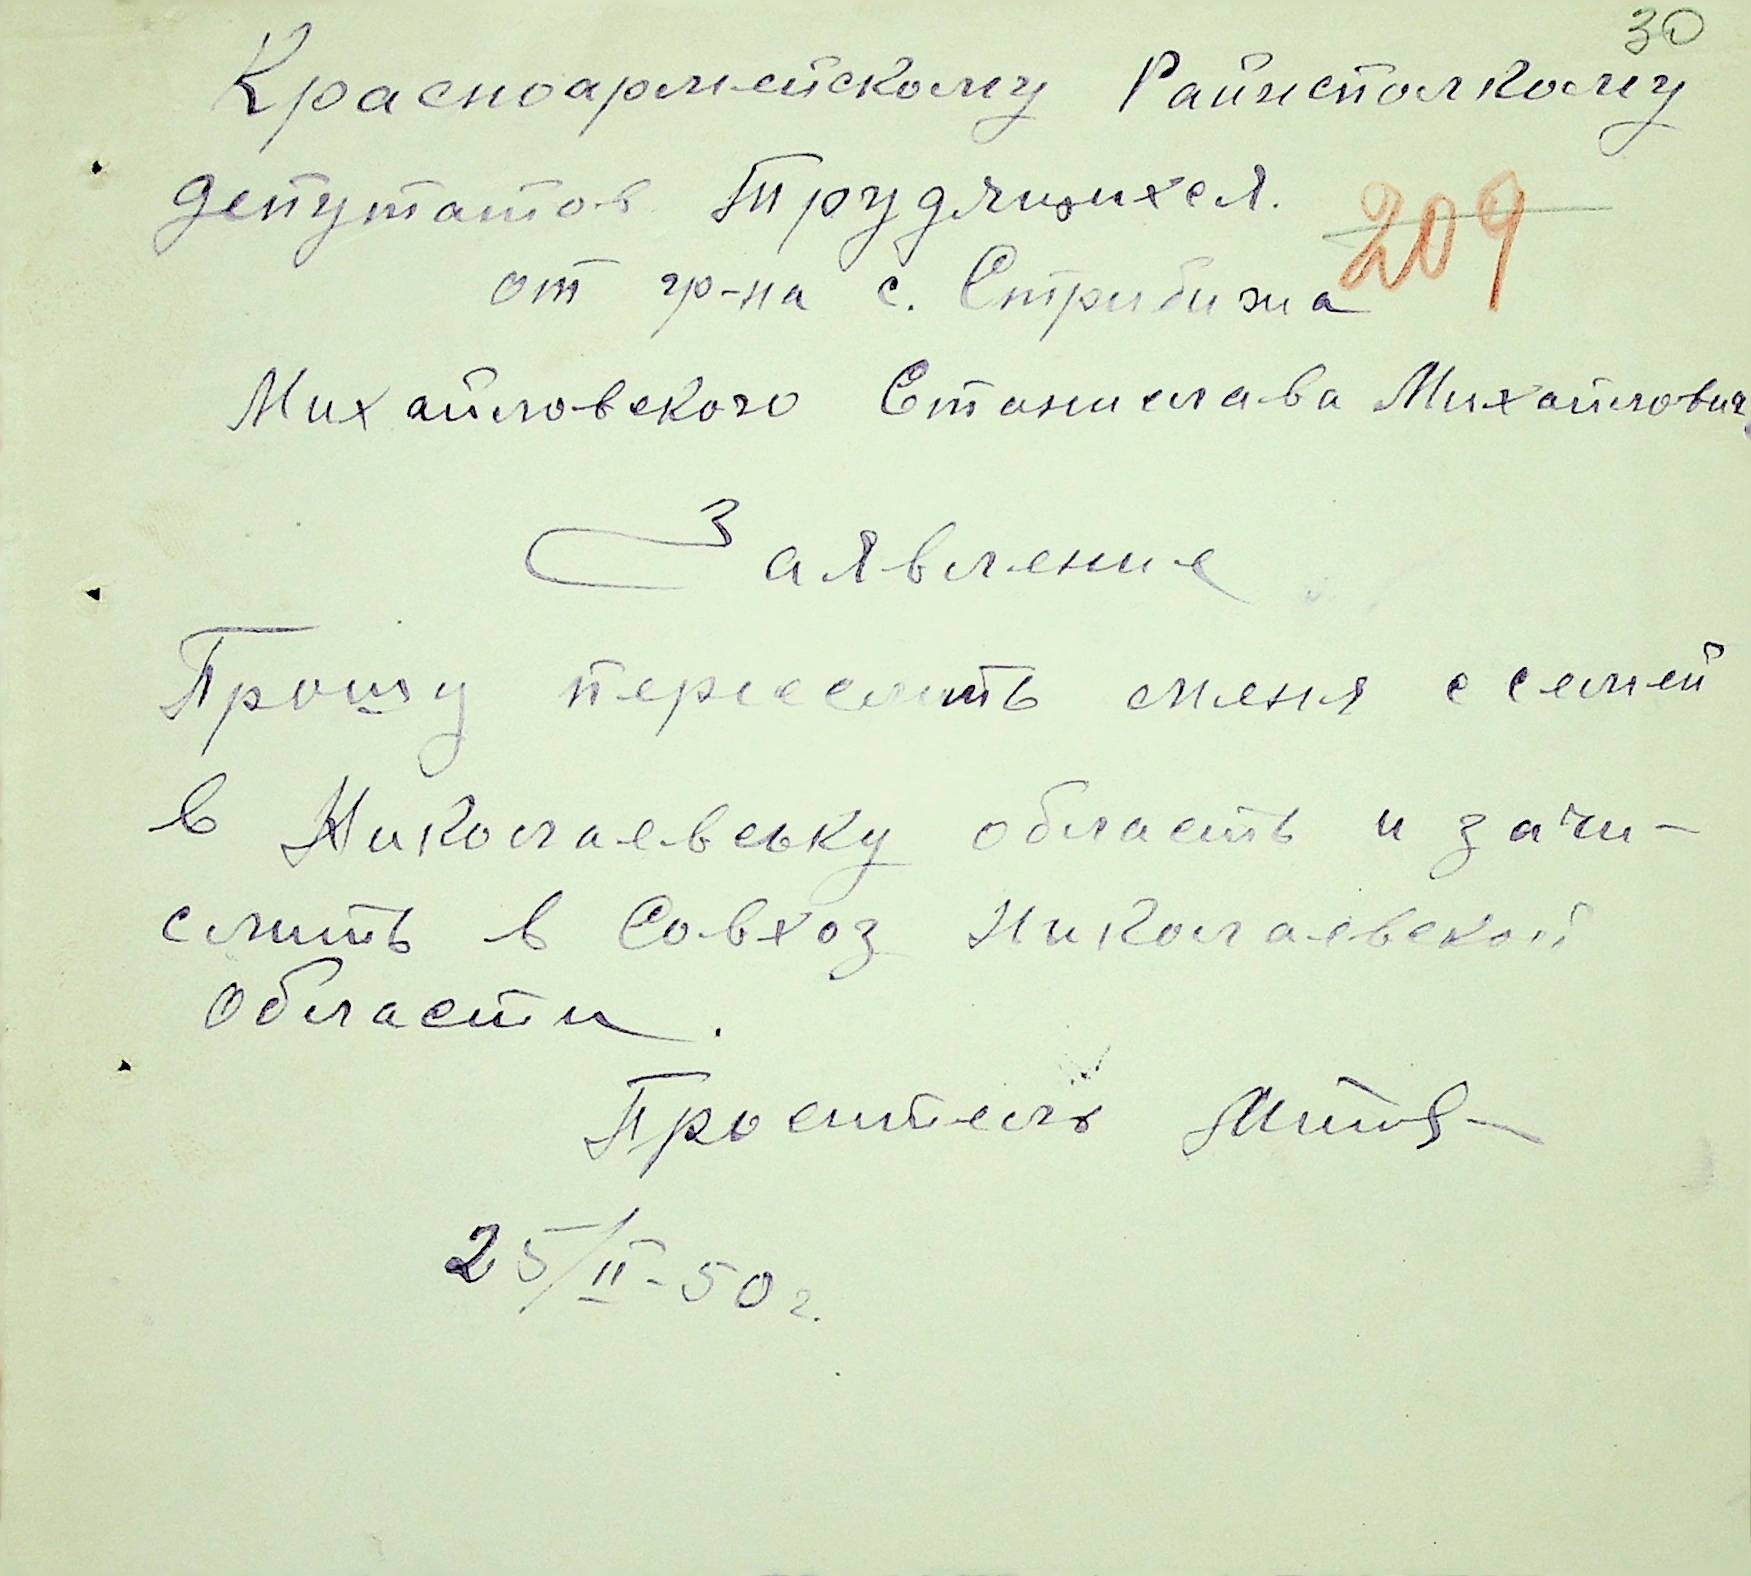 30
Красноармейскому Райисполкому
депутатов Трудящихся.
209
от гр-на с. Стрибижа
Михайловского Станислава Михайлович
Заявление
Прошу переселить меня с семей
в Николаевську область и зачи-
слить в Совхоз Николаевской
области.
Проситель
25/II-50 г.